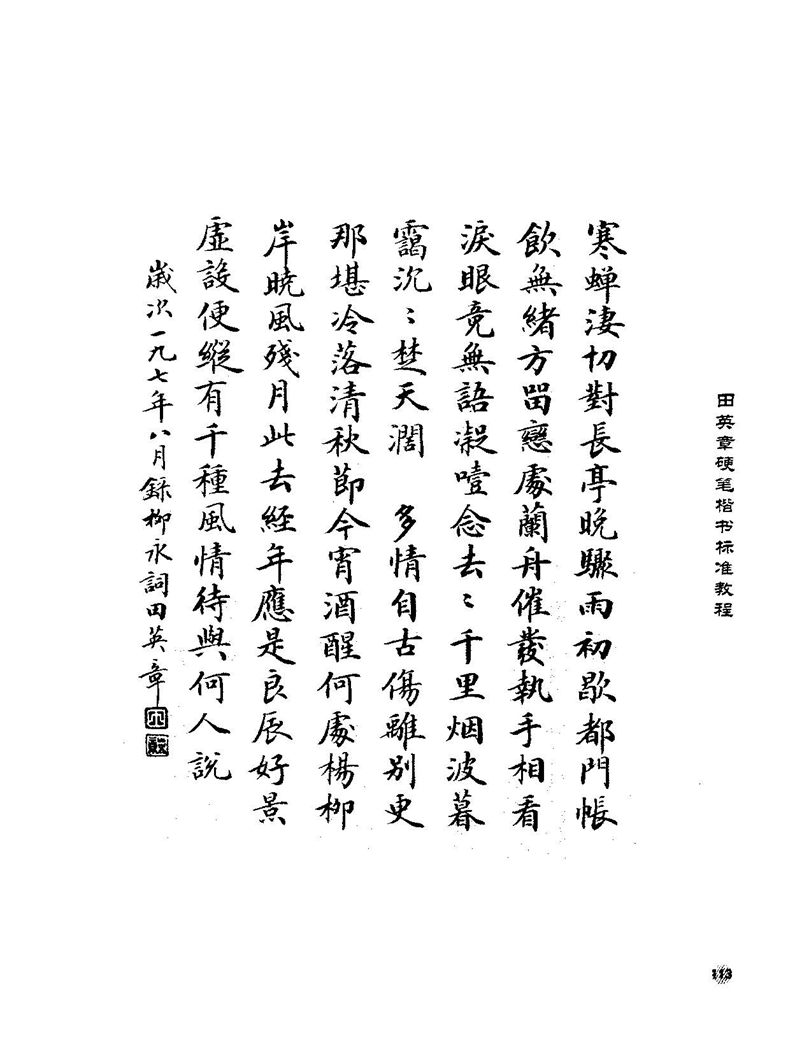 田英章硬笔楷书标准教程
寒蟬淒切對長亭晚驟雨初歇都門帳
飲無緒方留戀處蘭舟催發執手相看
淚眼竟無語凝噎念去〻千里烟波暮
靄沉〻楚天濶 多情自古傷離別更
那堪冷落清秋節今宵酒醒何處楊柳
岸曉風殘月此去經年應是良辰好景
虛設便縱有千種風情待與何人說
歲次一九七年八月錄柳永詞田英章
113